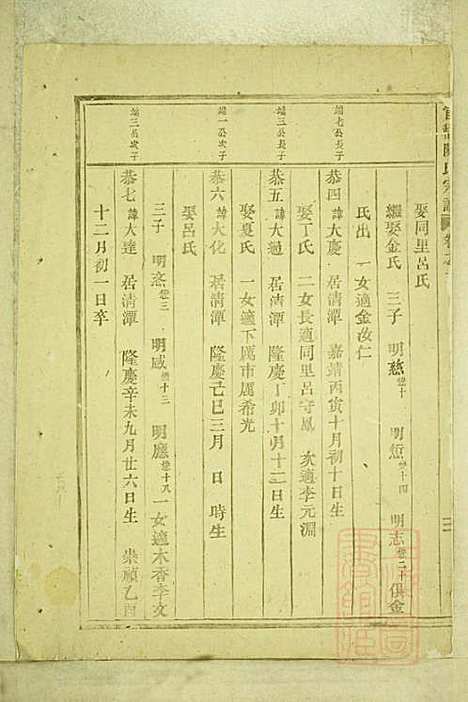 娶同里呂氏
繼娶金氏 三子 明慈 明恒 明志 俱金
氏出 一女適金汝仁
端七公長子
恭四 諱大慶 居清潭 嘉靖丙寅十月初十日生
娶丁氏 二女長適同里呂守鳳 次適李元淵
端三公長子
恭五 諱大通 居清潭 隆慶丁卯十月十二日生
娶夏氏 一女適下厲市厲希光
端一公次子
恭六 諱大化 居清潭 隆慶己巳三月 日 時生
娶呂氏
三子 明 德三 明感 德十三 明應 德十八 一女適木香李文
端三公次子
恭七 諱大達 居清潭 隆慶辛未九月廿六日生 崇禎乙酉
十二月初一日卒